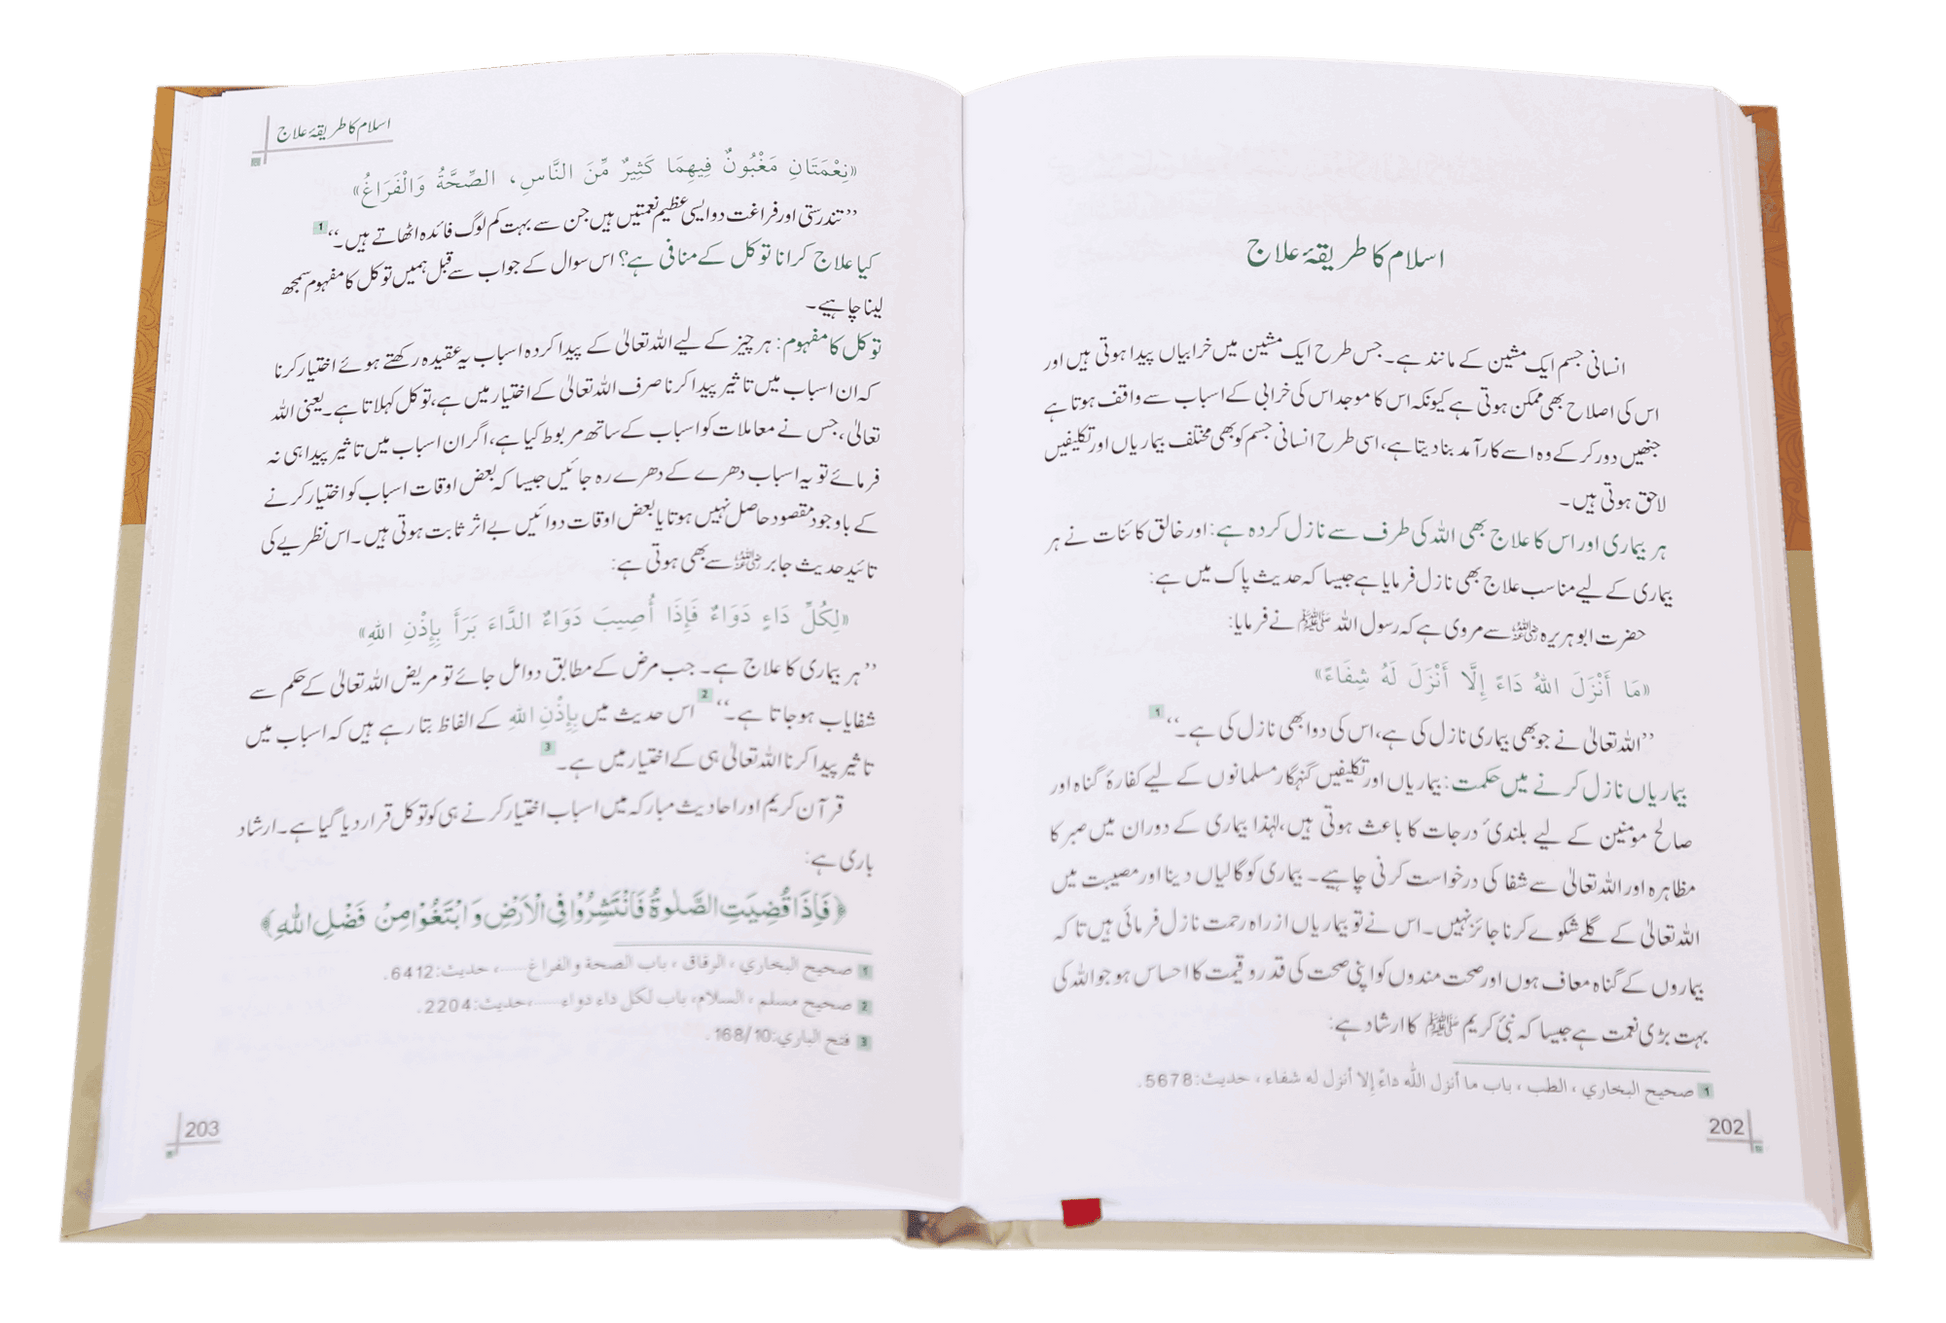 اسلام کا طریقۂ علاج
انسانی جسم ایک مشین کے مانند ہے۔ جس طرح ایک مشین میں خرابیاں پیدا ہوتی ہیں اور
اس کی اصلاح بھی ممکن ہوتی ہے کیونکہ اس کا موجد اس کی خرابی کے اسباب سے واقف ہوتا ہے
جنھیں دور کر کے وہ اسے کارآمد بنا دیتا ہے، اسی طرح انسانی جسم کو بھی مختلف بیماریاں اور تکلیفیں
لاحق ہوتی ہیں۔
ہر بیماری اور اس کا علاج بھی اللہ کی طرف سے نازل کردہ ہے: اور خالق کائنات نے ہر
بیماری کے لیے مناسب علاج بھی نازل فرمایا ہے جیسا کہ حدیث پاک میں ہے:
حضرت ابوہریرہ رضی اللہ عنہ سے مروی ہے کہ رسول اللہ ﷺ نے فرمایا:
«مَا أَنْزَلَ اللهُ دَاءً إِلَّا أَنْزَلَ لَهُ شِفَاءً»
’’اللہ تعالیٰ نے جو بھی بیماری نازل کی ہے، اس کی دوا بھی نازل کی ہے۔‘‘ 1
بیماریاں نازل کرنے میں حکمت: بیماریاں اور تکلیفیں گنہگار مسلمانوں کے لیے کفارۂ گناہ اور
صالح مومنین کے لیے بلندیٔ درجات کا باعث ہوتی ہیں، لہٰذا بیماری کے دوران میں صبر کا
مظاہرہ اور اللہ تعالیٰ سے شفا کی درخواست کرنی چاہیے۔ بیماری کو گالیاں دینا اور مصیبت میں
اللہ تعالیٰ کے گلے شکوے کرنا جائز نہیں۔ اس نے تو بیماریاں از راہ رحمت نازل فرمائی ہیں تاکہ
بیماروں کے گناہ معاف ہوں اور صحت مندوں کو اپنی صحت کی قدر و قیمت کا احساس ہو جو اللہ کی
بہت بڑی نعمت ہے جیسا کہ نبیٔ کریم ﷺ کا ارشاد ہے:
1 صحيح البخاري، الطب، باب ما أنزل الله داءً إلا أنزل له شفاء، حديث: 5678.
202
اسلام کا طریقۂ علاج
«نِعْمَتَانِ مَغْبُونٌ فِيهِمَا كَثِيرٌ مِّنَ النَّاسِ، الصِّحَّةُ وَالْفَرَاغُ»
’’تندرستی اور فراغت دو ایسی عظیم نعمتیں ہیں جن سے بہت کم لوگ فائدہ اٹھاتے ہیں۔‘‘ 1
کیا علاج کرانا توکل کے منافی ہے؟ اس سوال کے جواب سے قبل ہمیں توکل کا مفہوم سمجھ
لینا چاہیے۔
توکل کا مفہوم: ہر چیز کے لیے اللہ تعالیٰ کے پیدا کردہ اسباب یہ عقیدہ رکھتے ہوئے اختیار کرنا
کہ ان اسباب میں تاثیر پیدا کرنا صرف اللہ تعالیٰ کے اختیار میں ہے، توکل کہلاتا ہے۔ یعنی اللہ
تعالیٰ، جس نے معاملات کو اسباب کے ساتھ مربوط کیا ہے، اگر ان اسباب میں تاثیر پیدا ہی نہ
فرمائے تو یہ اسباب دھرے کے دھرے رہ جائیں جیسا کہ بعض اوقات اسباب کو اختیار کرنے
کے باوجود مقصود حاصل نہیں ہوتا یا بعض اوقات دوائیں بے اثر ثابت ہوتی ہیں۔ اس نظریے کی
تائید حدیث جابر رضی اللہ عنہ سے بھی ہوتی ہے:
«لِكُلِّ دَاءٍ دَوَاءٌ فَإِذَا أُصِيبَ دَوَاءُ الدَّاءَ بَرَأَ بِإِذْنِ اللهِ»
’’ہر بیماری کا علاج ہے۔ جب مرض کے مطابق دوا مل جائے تو مریض اللہ تعالیٰ کے حکم سے
شفایاب ہو جاتا ہے۔‘‘ 2 اس حدیث میں بِإِذْنِ اللهِ کے الفاظ بتا رہے ہیں کہ اسباب میں
تاثیر پیدا کرنا اللہ تعالیٰ ہی کے اختیار میں ہے۔ 3
قرآن کریم اور احادیث مبارکہ میں اسباب اختیار کرنے ہی کو توکل قرار دیا گیا ہے۔ ارشاد
باری ہے:
﴿فَاِذَا قُضِيَتِ الصَّلٰوةُ فَانْتَشِرُوْا فِى الْاَرْضِ وَابْتَغُوْا مِنْ فَضْلِ اللّٰهِ﴾
1 صحيح البخاري، الرقاق، باب الصحة والفراغ.....، حديث: 6412.
2 صحيح مسلم، السلام، باب لكل داء دواء.....، حديث: 2204.
3 فتح الباري: 168/10.
203